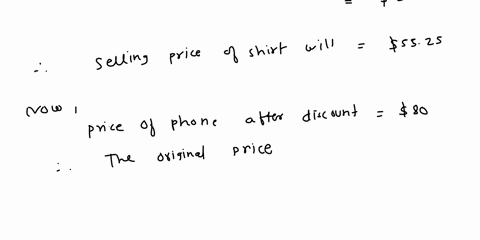 = $
∴ Selling price of shirt will = $55.25
Now,
price of phone after discount = $80
∴ The original price